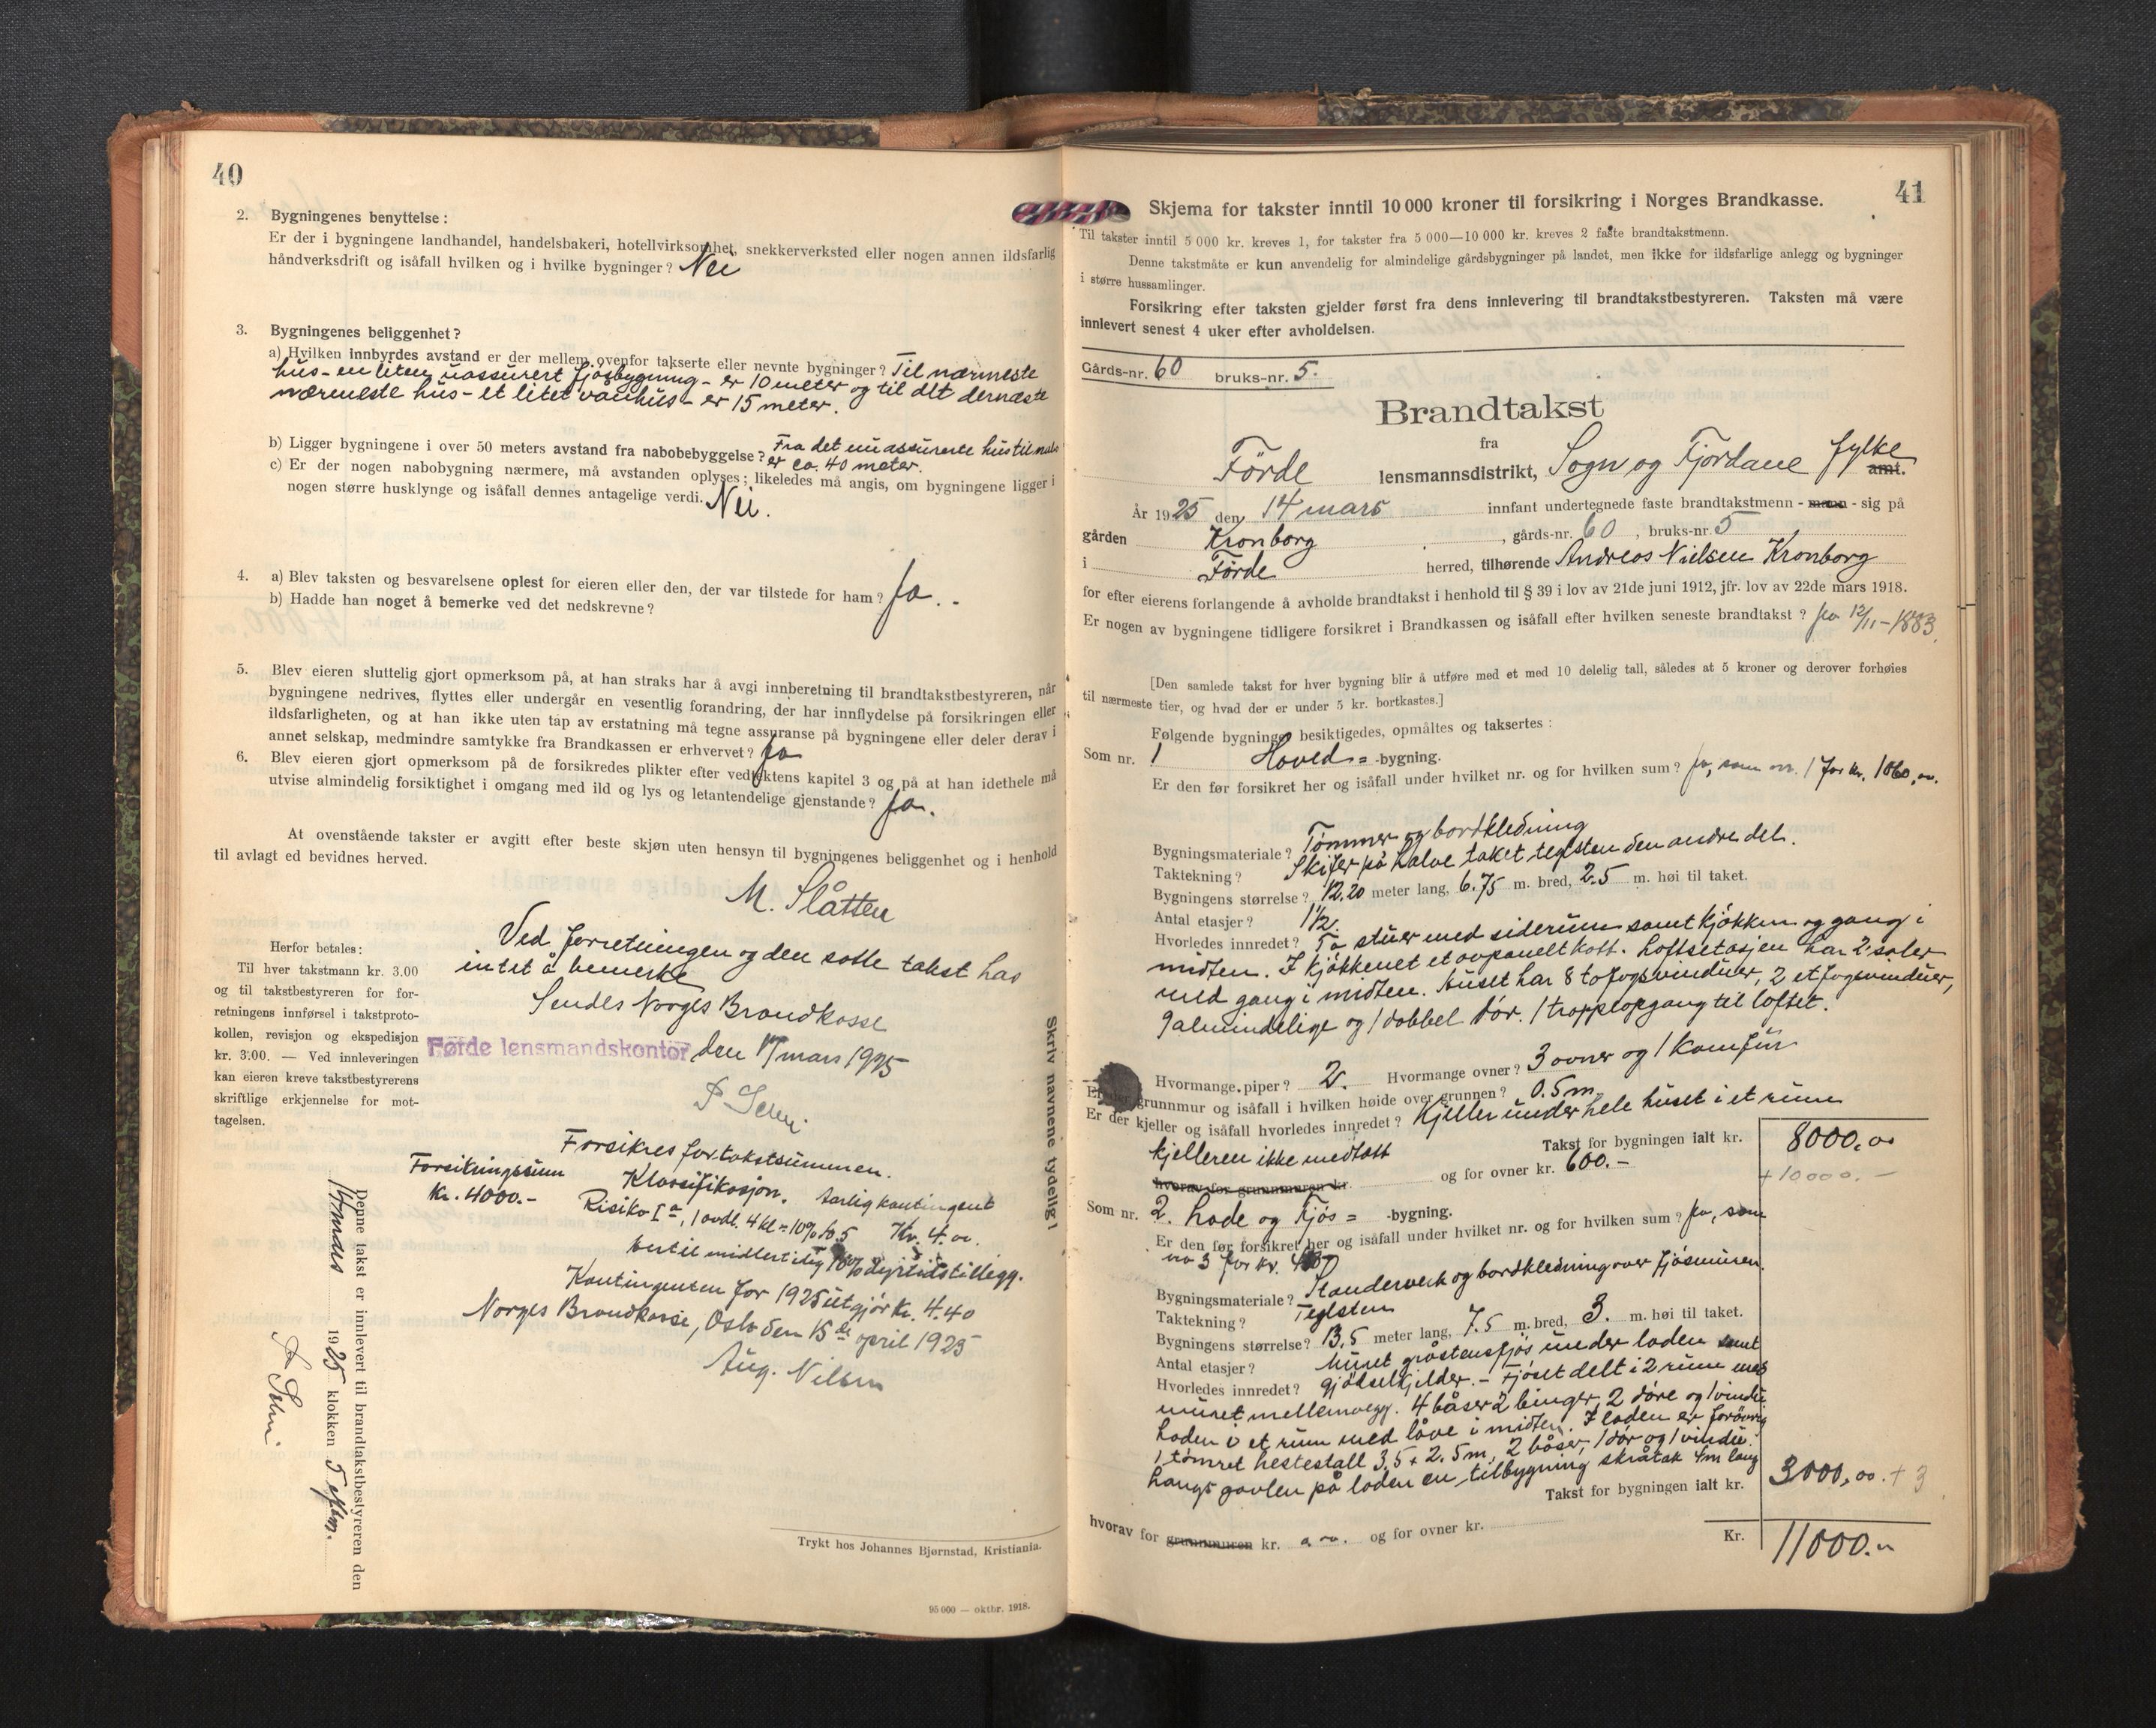 40
2. Bygningenes benyttelse:
Er der i bygningene landhandel, handelsbakeri, hotellvirksomhet, snekkerverksted eller nogen annen ildsfarlig
håndverksdrift og isåfall hvilken og i hvilke bygninger? Nei
3. Bygningenes beliggenhet?
a) Hvilken innbyrdes avstand er der mellem ovenfor takserte eller nevnte bygninger? Til nærmeste
hus - en liten uassurert fjøsbygning - er 10 meter og til det dernæste
nærmeste hus - et litet vaanhus - er 15 meter.
b) Ligger bygningene i over 50 meters avstand fra nabobebyggelse? Fra det uassurerte hus til nabo
er ca. 40 meter.
c) Er der nogen nabobygning nærmere, må avstanden oplyses; likeledes må angis, om bygningene ligger i
nogen større husklynge og isåfall dennes antagelige verdi. Nei.
4. a) Blev taksten og besvarelsene oplest for eieren eller den, der var tilstede for ham? Ja. -
b) Hadde han noget å bemerke ved det nedskrevne?
5. Blev eieren sluttelig gjort opmerksom på, at han straks har å avgi innberetning til brandtakstbestyreren, når
bygningene nedrives, flyttes eller undergår en vesentlig forandring, der har innflydelse på forsikringen eller
ildsfarligheten, og at han ikke uten tap av erstatning må tegne assuranse på bygningene eller deler derav i
annet selskap, medmindre samtykke fra Brandkassen er erhvervet? Ja
6. Blev eieren gjort opmerksom på de forsikredes plikter efter vedtektens kapitel 3 og på at han idethele må
utvise almindelig forsiktighet i omgang med ild og lys og letantendelige gjenstande? Ja.
At ovenstående takster er avgitt efter beste skjøn uten hensyn til bygningenes beliggenhet og i henhold
til avlagt ed bevidnes herved.
M. Slåtten
Ved forretningen og den satte takst has
intet å bemerke
Sendes Norges Brandkasse
Førde lensmandskontor den 17 mars 1925
Herfor betales:
Til hver takstmann kr. 3.00
og til takstbestyreren for for-
retningens innførsel i takstproto-
kollen, revisjon og ekspedisjon
kr. 3.00. — Ved innleveringen
kan eieren kreve takstbestyrerens
skriftlige erkjennelse for mot-
tagelsen.
Forsikres for takstsummen.
Forsikringssum Klassifikasjon. Aarlig kontingent
Kr. 4000.- Risiko I a, 1 avdl. 4 kl = 10% to. 5 Kr. 4.00.
hertil midlertidig 10% dyrtidstillegg.
Kontingenten for 1925 utgjør kr. 4.40
Norges Brandkasse, Oslo den 15de april 1925
Aug. Nilsen
Denne takst er innlevert til brandtakstbestyreren den
14 mars 1925 klokken 5 eftm.
Skriv navnene tydelig!
Trykt hos Johannes Bjørnstad, Kristiania.
95 000 — oktbr. 1918.
41
Skjema for takster inntil 10 000 kroner til forsikring i Norges Brandkasse.
Til takster inntil 5 000 kr. kreves 1, for takster fra 5 000—10 000 kr. kreves 2 faste brandtakstmenn.
Denne takstmåte er kun anvendelig for almindelige gårdsbygninger på landet, men ikke for ildsfarlige anlegg og bygninger
i større hussamlinger.
Forsikring efter taksten gjelder først fra dens innlevering til brandtakstbestyreren. Taksten må være
innlevert senest 4 uker efter avholdelsen.
Gårds-nr. 60 bruks-nr. 5.
Brandtakst
fra
Förde lensmannsdistrikt, Sogn og Fjordane fylke amt.
År 1925 den 14 mars innfant undertegnede faste brandtakstmenn - mann - sig på
gården Kronborg, gårds-nr. 60, bruks-nr. 5
i Förde herred, tilhørende Andreas Nielsen Kronborg
for efter eierens forlangende å avholde brandtakst i henhold til § 39 i lov av 21de juni 1912, jfr. lov av 22de mars 1918.
Er nogen av bygningene tidligere forsikret i Brandkassen og isåfall efter hvilken seneste brandtakst? Ja 12/11-1883.
[Den samlede takst for hver bygning blir å utføre med et med 10 delelig tall, således at 5 kroner og derover forhøies
til nærmeste tier, og hvad der er under 5 kr. bortkastes.]
Følgende bygninger besiktigedes, opmåltes og taksertes:
Som nr. 1 Hoved= -bygning.
Er den før forsikret her og isåfall under hvilket nr. og for hvilken sum? Ja, som nr. 1 for kr. 1060,00.
Bygningsmateriale? Tömmer og bordkledning
Taktekning? Skifer på halve taket teglsten den andre del.
Bygningens størrelse? 12.20 meter lang, 6.75 m. bred, 2.5 m. høi til taket.
Antal etasjer? 1½.
Hvorledes innredet? To stuer med siderum samt kjökken og gang i
midten. I kjökkenet et avpanelt kott. Loftsetasjen har 2 saler
med gang i midten. Huset har 8 tofagsvinduer, 2 etfagsvinduer,
9 almindelige og 1 dobbel dör. 1 trappeopgang til loftet.
Hvormange piper? 2. Hvormange ovner? 3 ovner og 1 Komfür
Er der grunnmur og isåfall i hvilken høide over grunnen? 0.5 m.
Er der kjeller og isåfall hvorledes innredet? Kjeller under hele huset i et rum
kjelleren ikke medtatt Takst for bygningen ialt kr. 8000.00
hvorav for grunnmuren kr. og for ovner kr. 600.- + 10000.-
Som nr. 2. Lade og Fjös= -bygning.
Er den før forsikret her og isåfall under hvilket nr. og for hvilken sum? Ja, som
no 3 for kr.
Bygningsmateriale? Standerverk og bordkledning over fjösmuren.
Taktekning? Teglsten
Bygningens størrelse? 13.5 meter lang, 7.5 m. bred, 3. m. høi til taket.
Antal etasjer? Muret gråstensfjös under laden samt
Hvorledes innredet? gjödselkjelder. - Fjöset delt i 2 rum med
muret mellemvegg. 4 båser 2 binger, 2 döre og 1 vindu.
Laden i et rum med låve i midten. I laden er forövrig
1 tömret hestestall 3.5 + 2.5 m, 2 båser, 1 dör og 1 vindu.
Langs gavlen på laden en tilbygning skråtak 4 m lang
Takst for bygningen ialt kr. 3000,00. + 3
hvorav for grunnmuren kr. og for ovner kr.
Kr. 11000.-